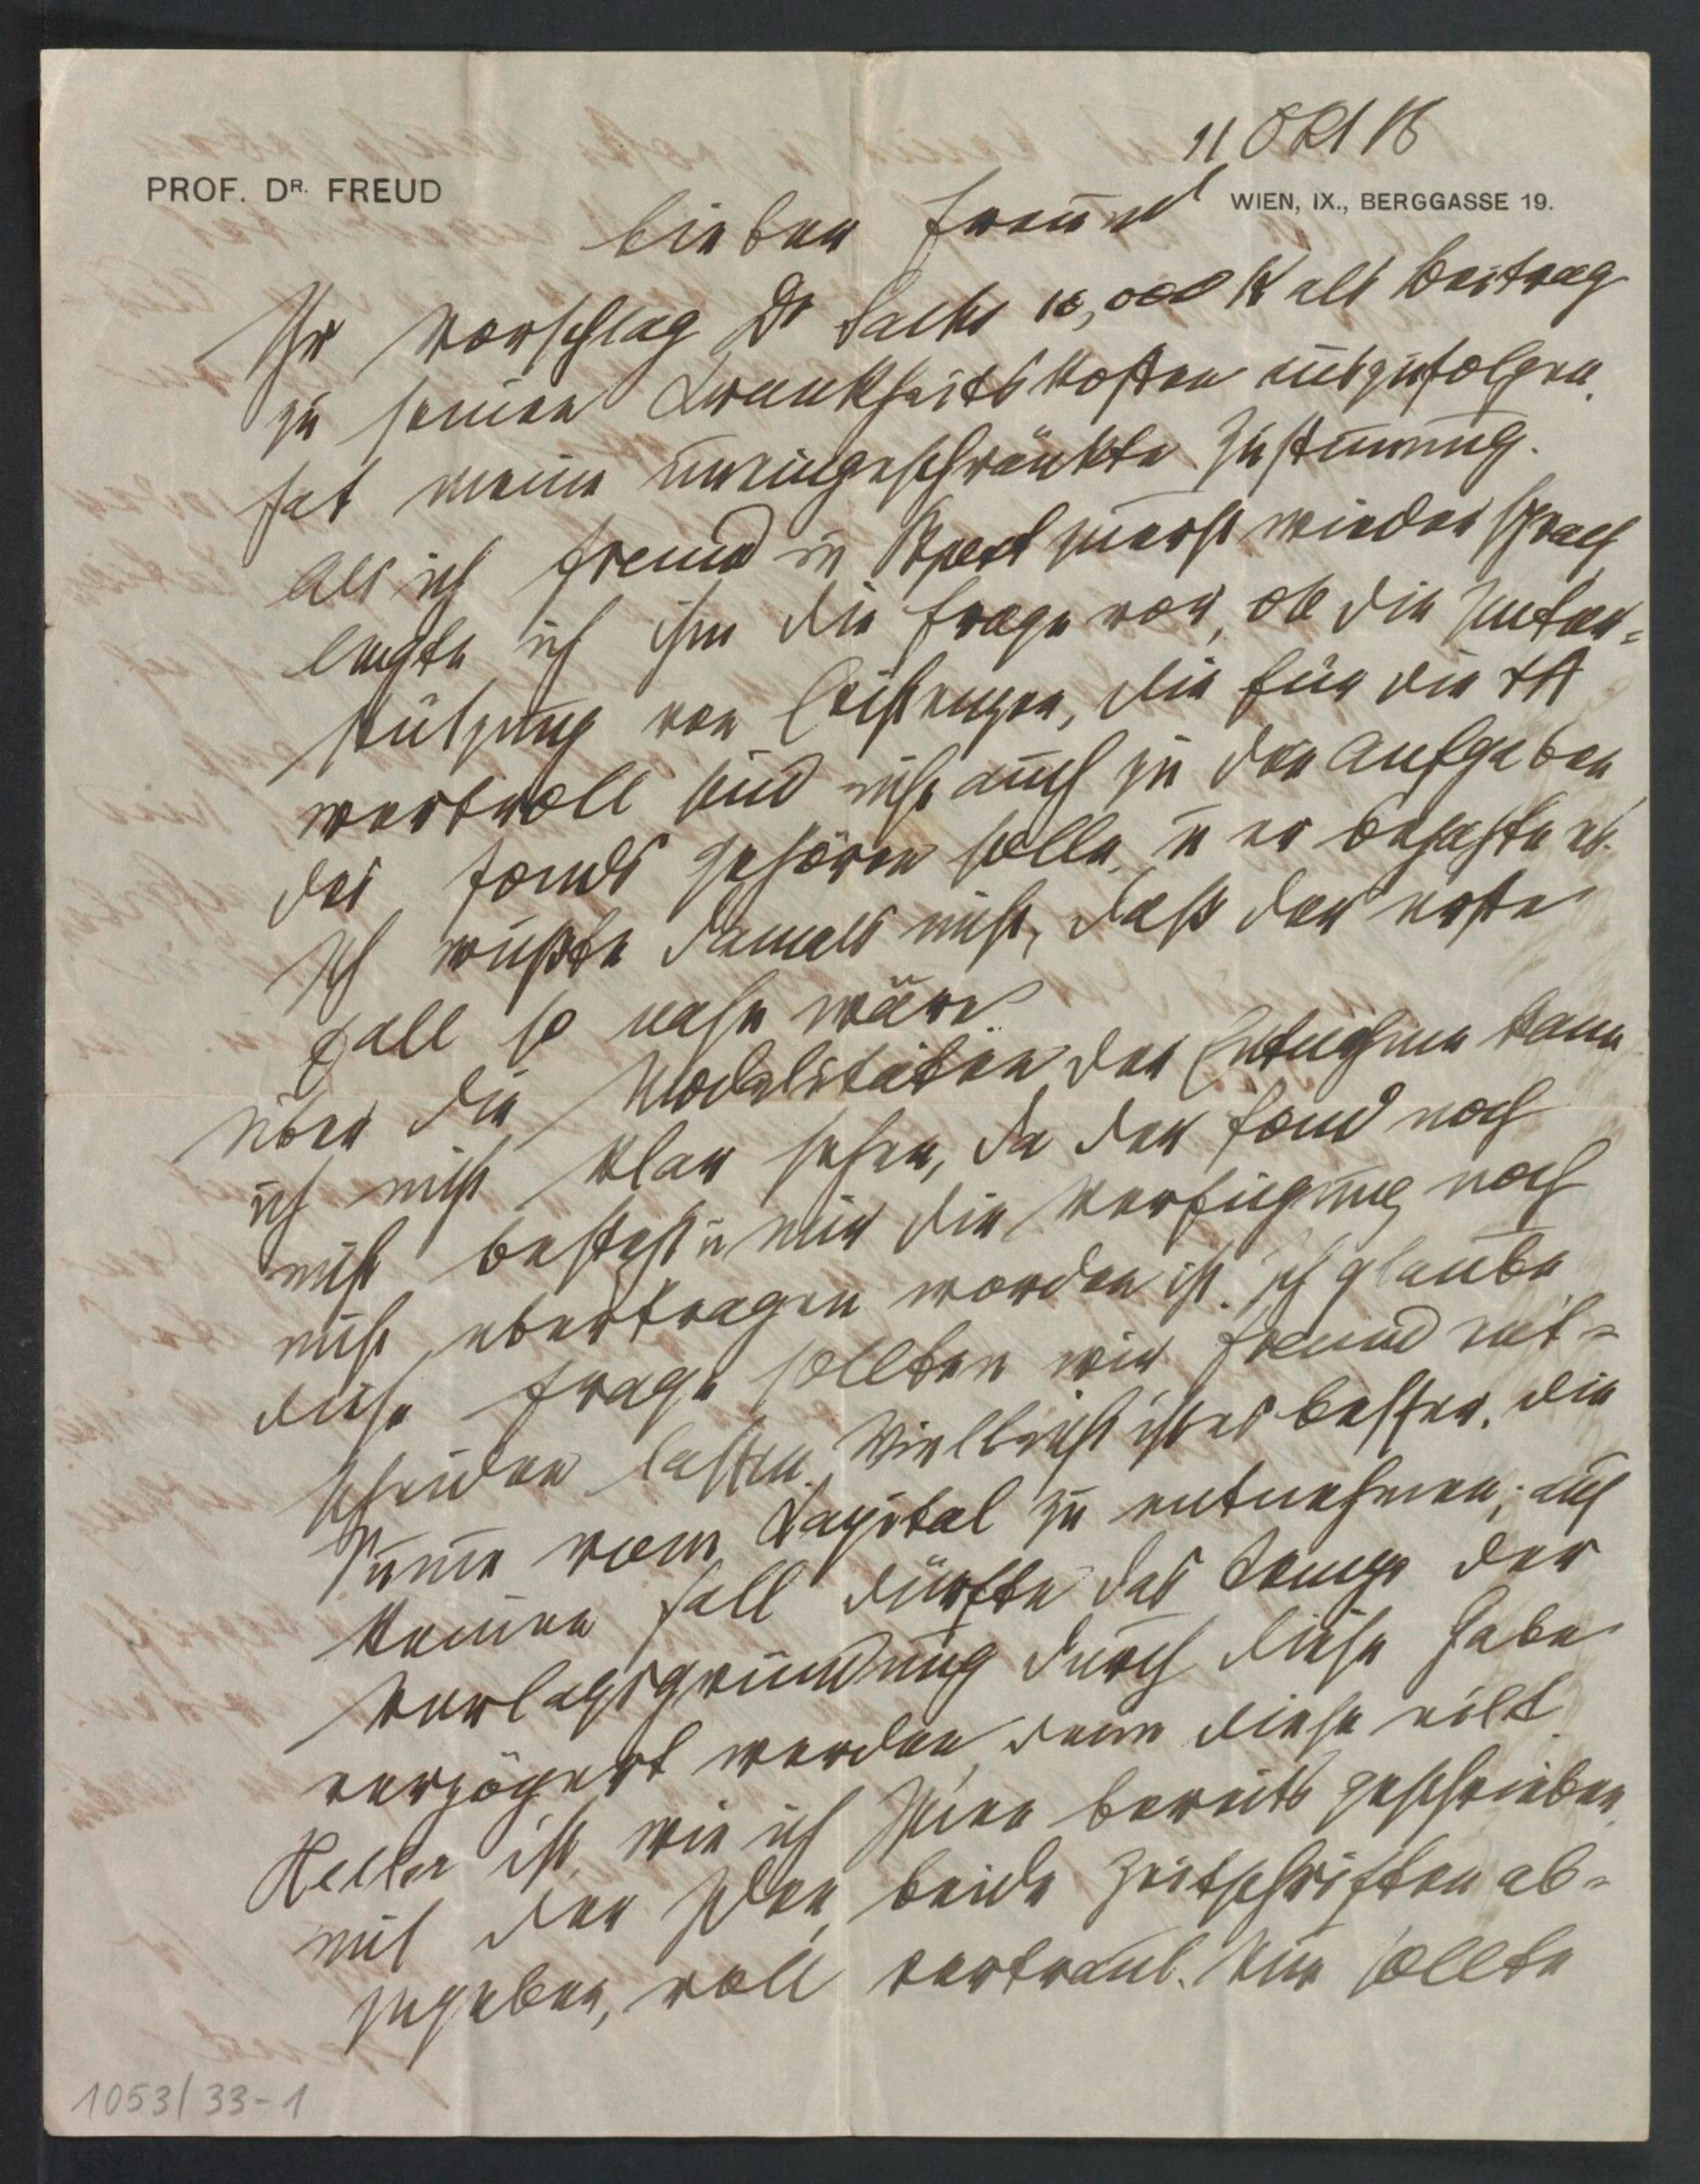 11 Okt 18
PROF. DR. FREUD
WIEN, IX., BERGGASSE 19.
Lieber Freund
Ihr Vorschlag Dr Sachs 10,000 K als Beitrag
zu seinen Krankheitskosten auszufolgen,
hat meine uneingeschränkte Zustimmung.
Als ich Freund in Bpest zuerst wieder sprach
legte ich ihm die Frage vor, ob die Unter=
stützung von Leistungen, die für die ΨΑ
wertvoll sind nicht auch zu den Aufgaben
des Fonds gehören solle, u er bejahte es.
Ich wußte damals nicht, daß der erste
Fall so nahe wäre.
Über die Modalitäten der Entnahme kann
ich nicht klar sehen, da der Fond noch
nicht besteht u mir die Verfügung noch
nicht übertragen worden ist. Ich glaube,
diese Frage sollten wir Freund ent=
scheiden lassen. Vielleicht ist es besser, die
Summe vom Kapital zu entnehmen; auf
keinen Fall dürfte das Tempo der
Verlagsgründung durch diese Gabe
verzögert werden, denn diese eilt.
Heller ist, wie ich Ihnen bereits geschrieben,
mit der Idee, beide Zeitschriften ab=
zugeben, voll vertraut. Nur sollte
1053/33-1